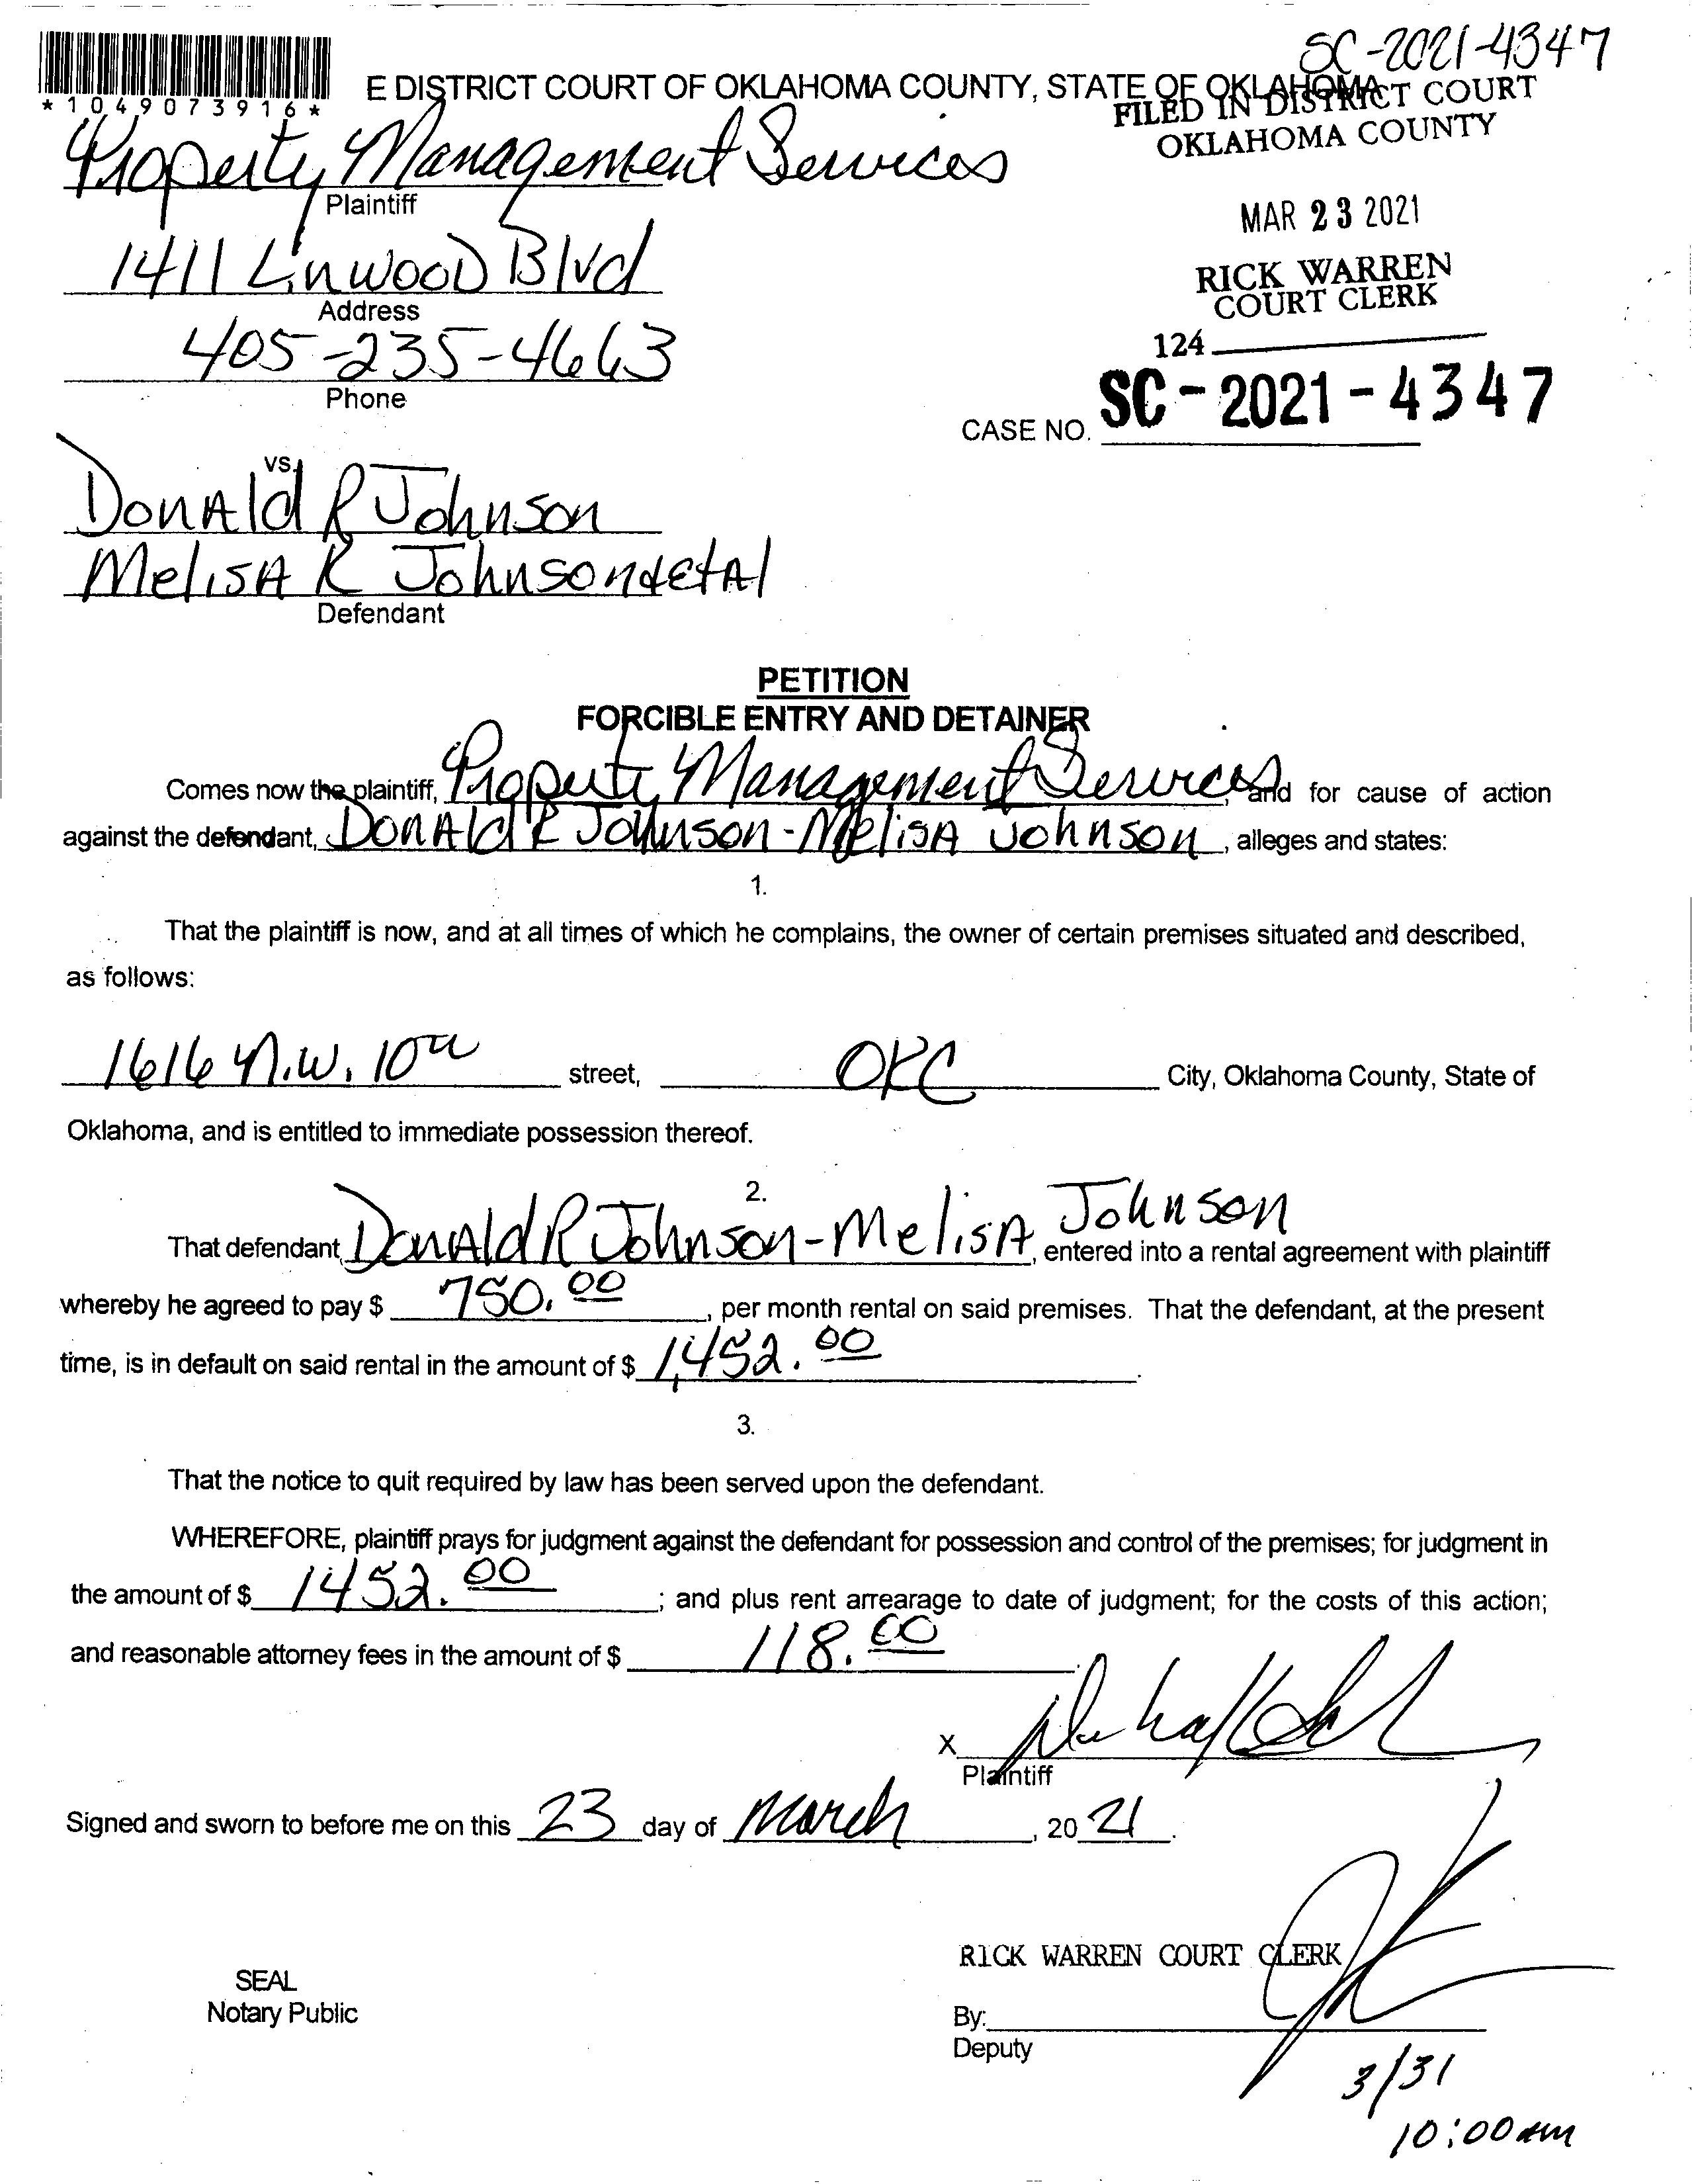 SC-2021-4347
*1049073916*
E DISTRICT COURT OF OKLAHOMA COUNTY, STATE OF OKLAHOMA
FILED IN DISTRICT COURT
OKLAHOMA COUNTY
Property Management Services
Plaintiff
MAR 23 2021
1411 Linwood Blvd
Address
RICK WARREN
COURT CLERK
405-235-4663
Phone
124
CASE NO. SC-2021-4347
vs.
Donald R Johnson
Melisa R Johnson & etal
Defendant
PETITION
FORCIBLE ENTRY AND DETAINER
Comes now the plaintiff, Property Management Services, and for cause of action
against the defendant, Donald R Johnson - Melisa Johnson, alleges and states:
1.
That the plaintiff is now, and at all times of which he complains, the owner of certain premises situated and described,
as follows:
1616 N.W. 10th street, OKC City, Oklahoma County, State of
Oklahoma, and is entitled to immediate possession thereof.
2.
That defendant, Donald R Johnson - Melisa Johnson, entered into a rental agreement with plaintiff
whereby he agreed to pay $ 750.00, per month rental on said premises. That the defendant, at the present
time, is in default on said rental in the amount of $ 1,452.00.
3.
That the notice to quit required by law has been served upon the defendant.
WHEREFORE, plaintiff prays for judgment against the defendant for possession and control of the premises; for judgment in
the amount of $ 1452.00; and plus rent arrearage to date of judgment; for the costs of this action;
and reasonable attorney fees in the amount of $ 118.00.
X
Plaintiff
Signed and sworn to before me on this 23 day of March, 20 21.
RICK WARREN COURT CLERK
SEAL
Notary Public
By:
Deputy
3/31
10:00am